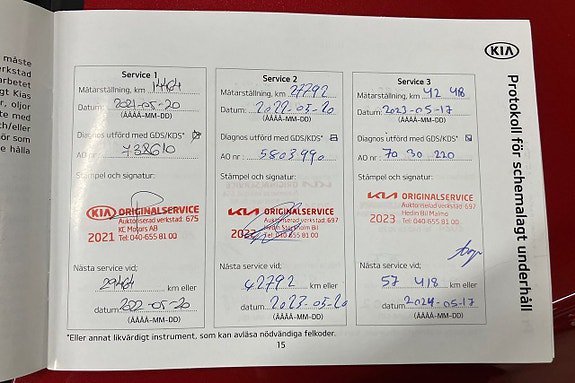 måste
erkstad
arbetet
gt Kias
r, oljor
te med
ch/eller
ör som
e hålla
KIA
Protokoll för schemalagt underhåll
Service 1
Mätarställning, km 14464
Datum: 2021-05-20
(ÅÅÅÅ-MM-DD)
Diagnos utförd med GDS/KDS*
AO nr: 738610
Stämpel och signatur:
KIA ORIGINALSERVICE
Auktoriserad verkstad: 675
KC Motors AB
2021 Tel: 040-655 81 00
Nästa service vid;
29464 km eller
datum: 202-05-20
(ÅÅÅÅ-MM-DD)
Service 2
Mätarställning, km 27792
Datum: 2022-05-20
(ÅÅÅÅ-MM-DD)
Diagnos utförd med GDS/KDS*
AO nr: 5803990
Stämpel och signatur:
KIA ORIGINALSERVICE
Auktoriserad verkstad: 697
Hedin Bil
2022 Tel: 040-655 81 00
Nästa service vid;
42792 km eller
datum: 2023-05-20
(ÅÅÅÅ-MM-DD)
Service 3
Mätarställning, km 42 418
Datum: 2023-05-17
(ÅÅÅÅ-MM-DD)
Diagnos utförd med GDS/KDS*
AO nr: 70 30 220
Stämpel och signatur:
KIA ORIGINALSERVICE
Auktoriserad verkstad: 697
2023 Hedin Bil Malmö
Tel: 040-655 81 00
Nästa service vid;
57 418 km eller
datum: 2024-05-17
(ÅÅÅÅ-MM-DD)
*Eller annat likvärdigt instrument, som kan avläsa nödvändiga felkoder.
15